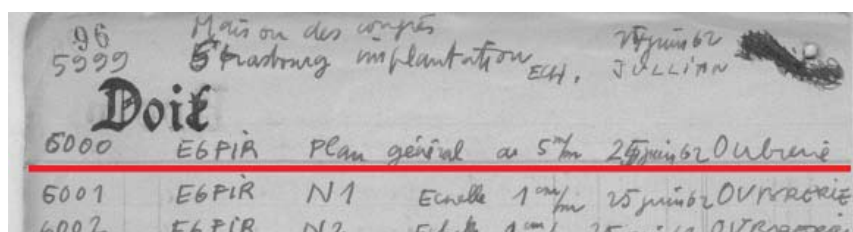 96 Maison des congrès
5999 Strasbourg implantation ECH. 25 juin 62 JULLIAN
Doit
6000 EGPIR Plan général au 5 m/m 25 juin 62 Oubrerie
6001 EGPIR N1 Echelle 1 cm/m 25 juin 62 OUBRERIE
6002 EGPIR N2 Echelle 1 cm/m 25 juin 62 OUBRERIE